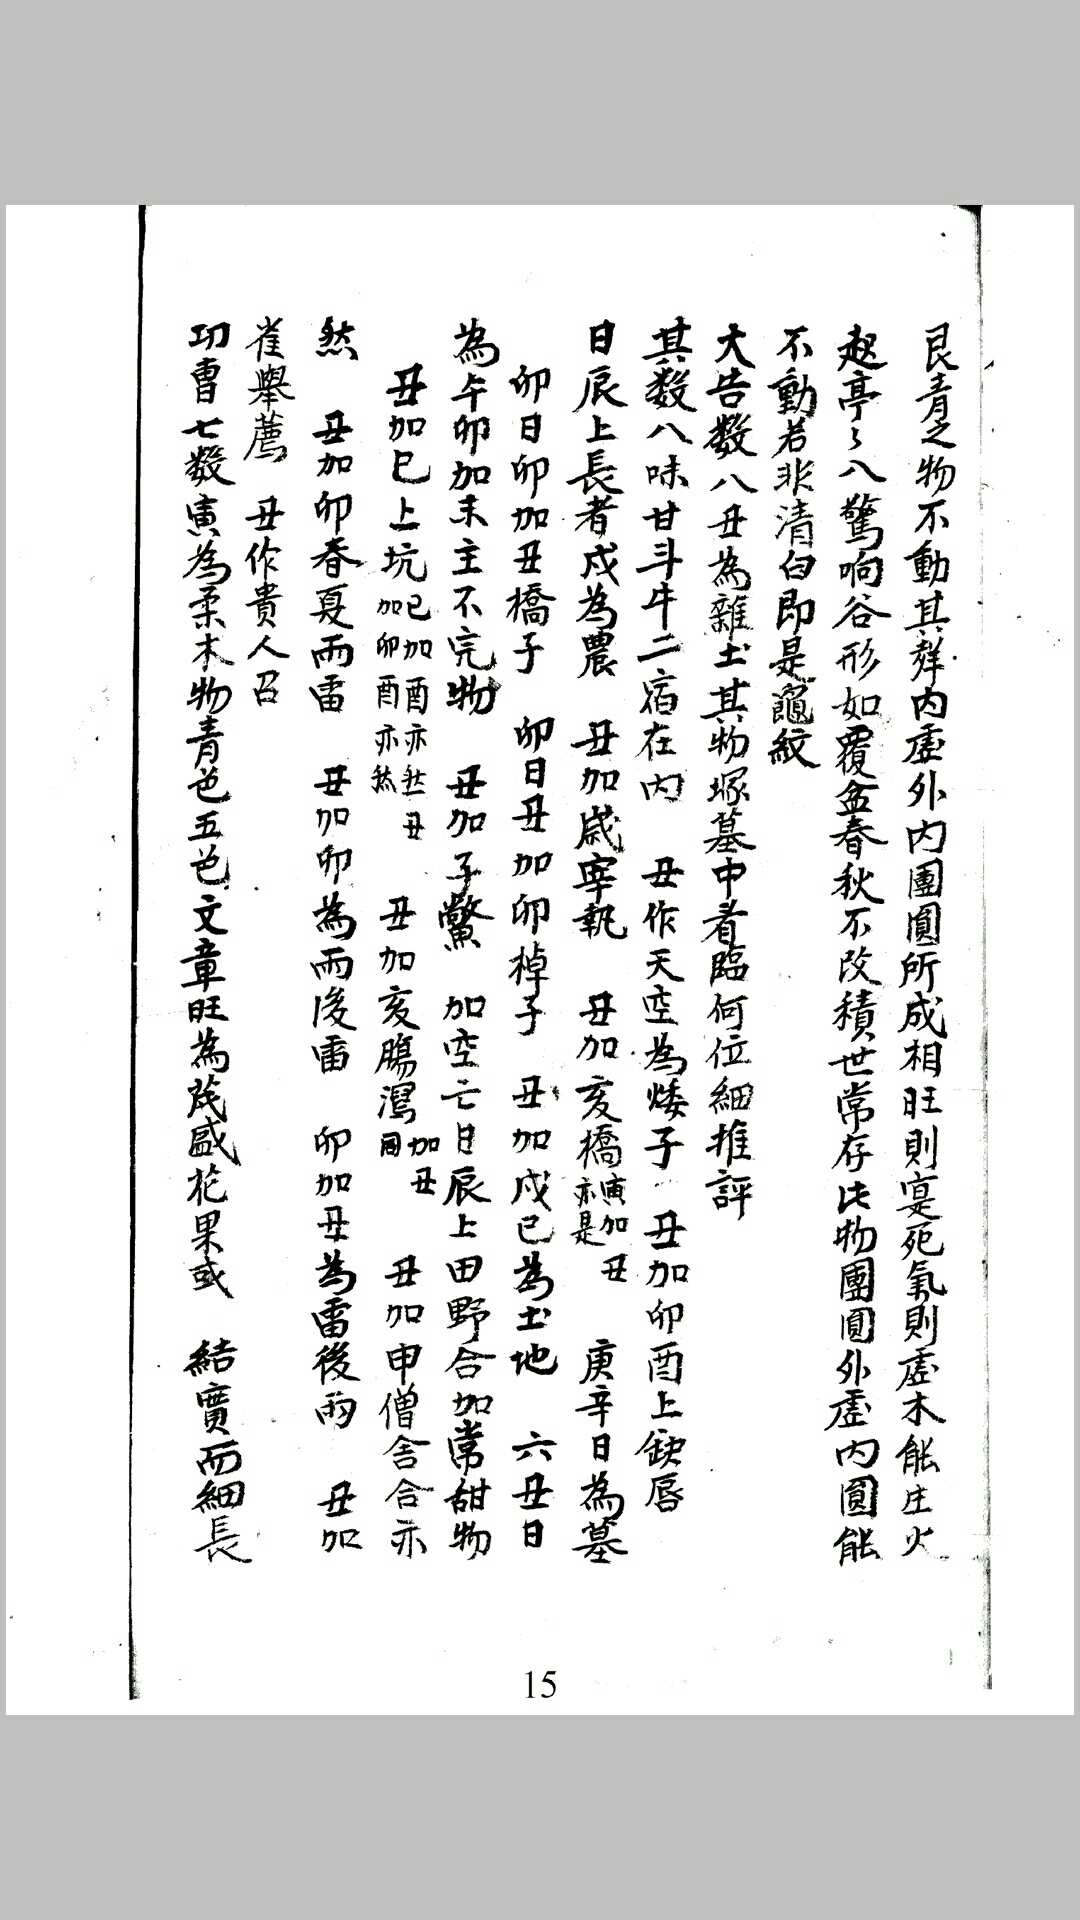 艮青之物不動其群內虛外內團圓所成相旺則寔死氣則虛木能庄火
起亭々八驚响谷形如覆盆春秋不改積世常存此物團圓外虛内圓能
不動若非清白即是龜紋
大吉數八丑為雜土其物塚墓中看臨何位細推評
其数八味甘斗牛二宿在内　丑作天空為矮子　丑加卯酉上缺唇
日辰上長者戌為農　丑加歲宰執　丑加亥橋寅加丑亦是　庚辛日為墓
卯日卯加丑橋子　卯日丑加卯棹子　丑加戌已為土地　六丑日
為午卯加未主不完物　丑加子鱉　加空亡日辰上田野合加常甜物
丑加巳上坑已加酉亦然丑加卯酉亦然　丑加亥腸瀉加丑同　丑加申僧舍合亦
然　丑加卯春夏雨雷　丑加卯為雨後雷　卯加丑為雷後雨　丑加
雀舉薦　丑作貴人召
功曹七數寅為柔木物青色五色文章旺為茂盛花果或　結實而細長
15